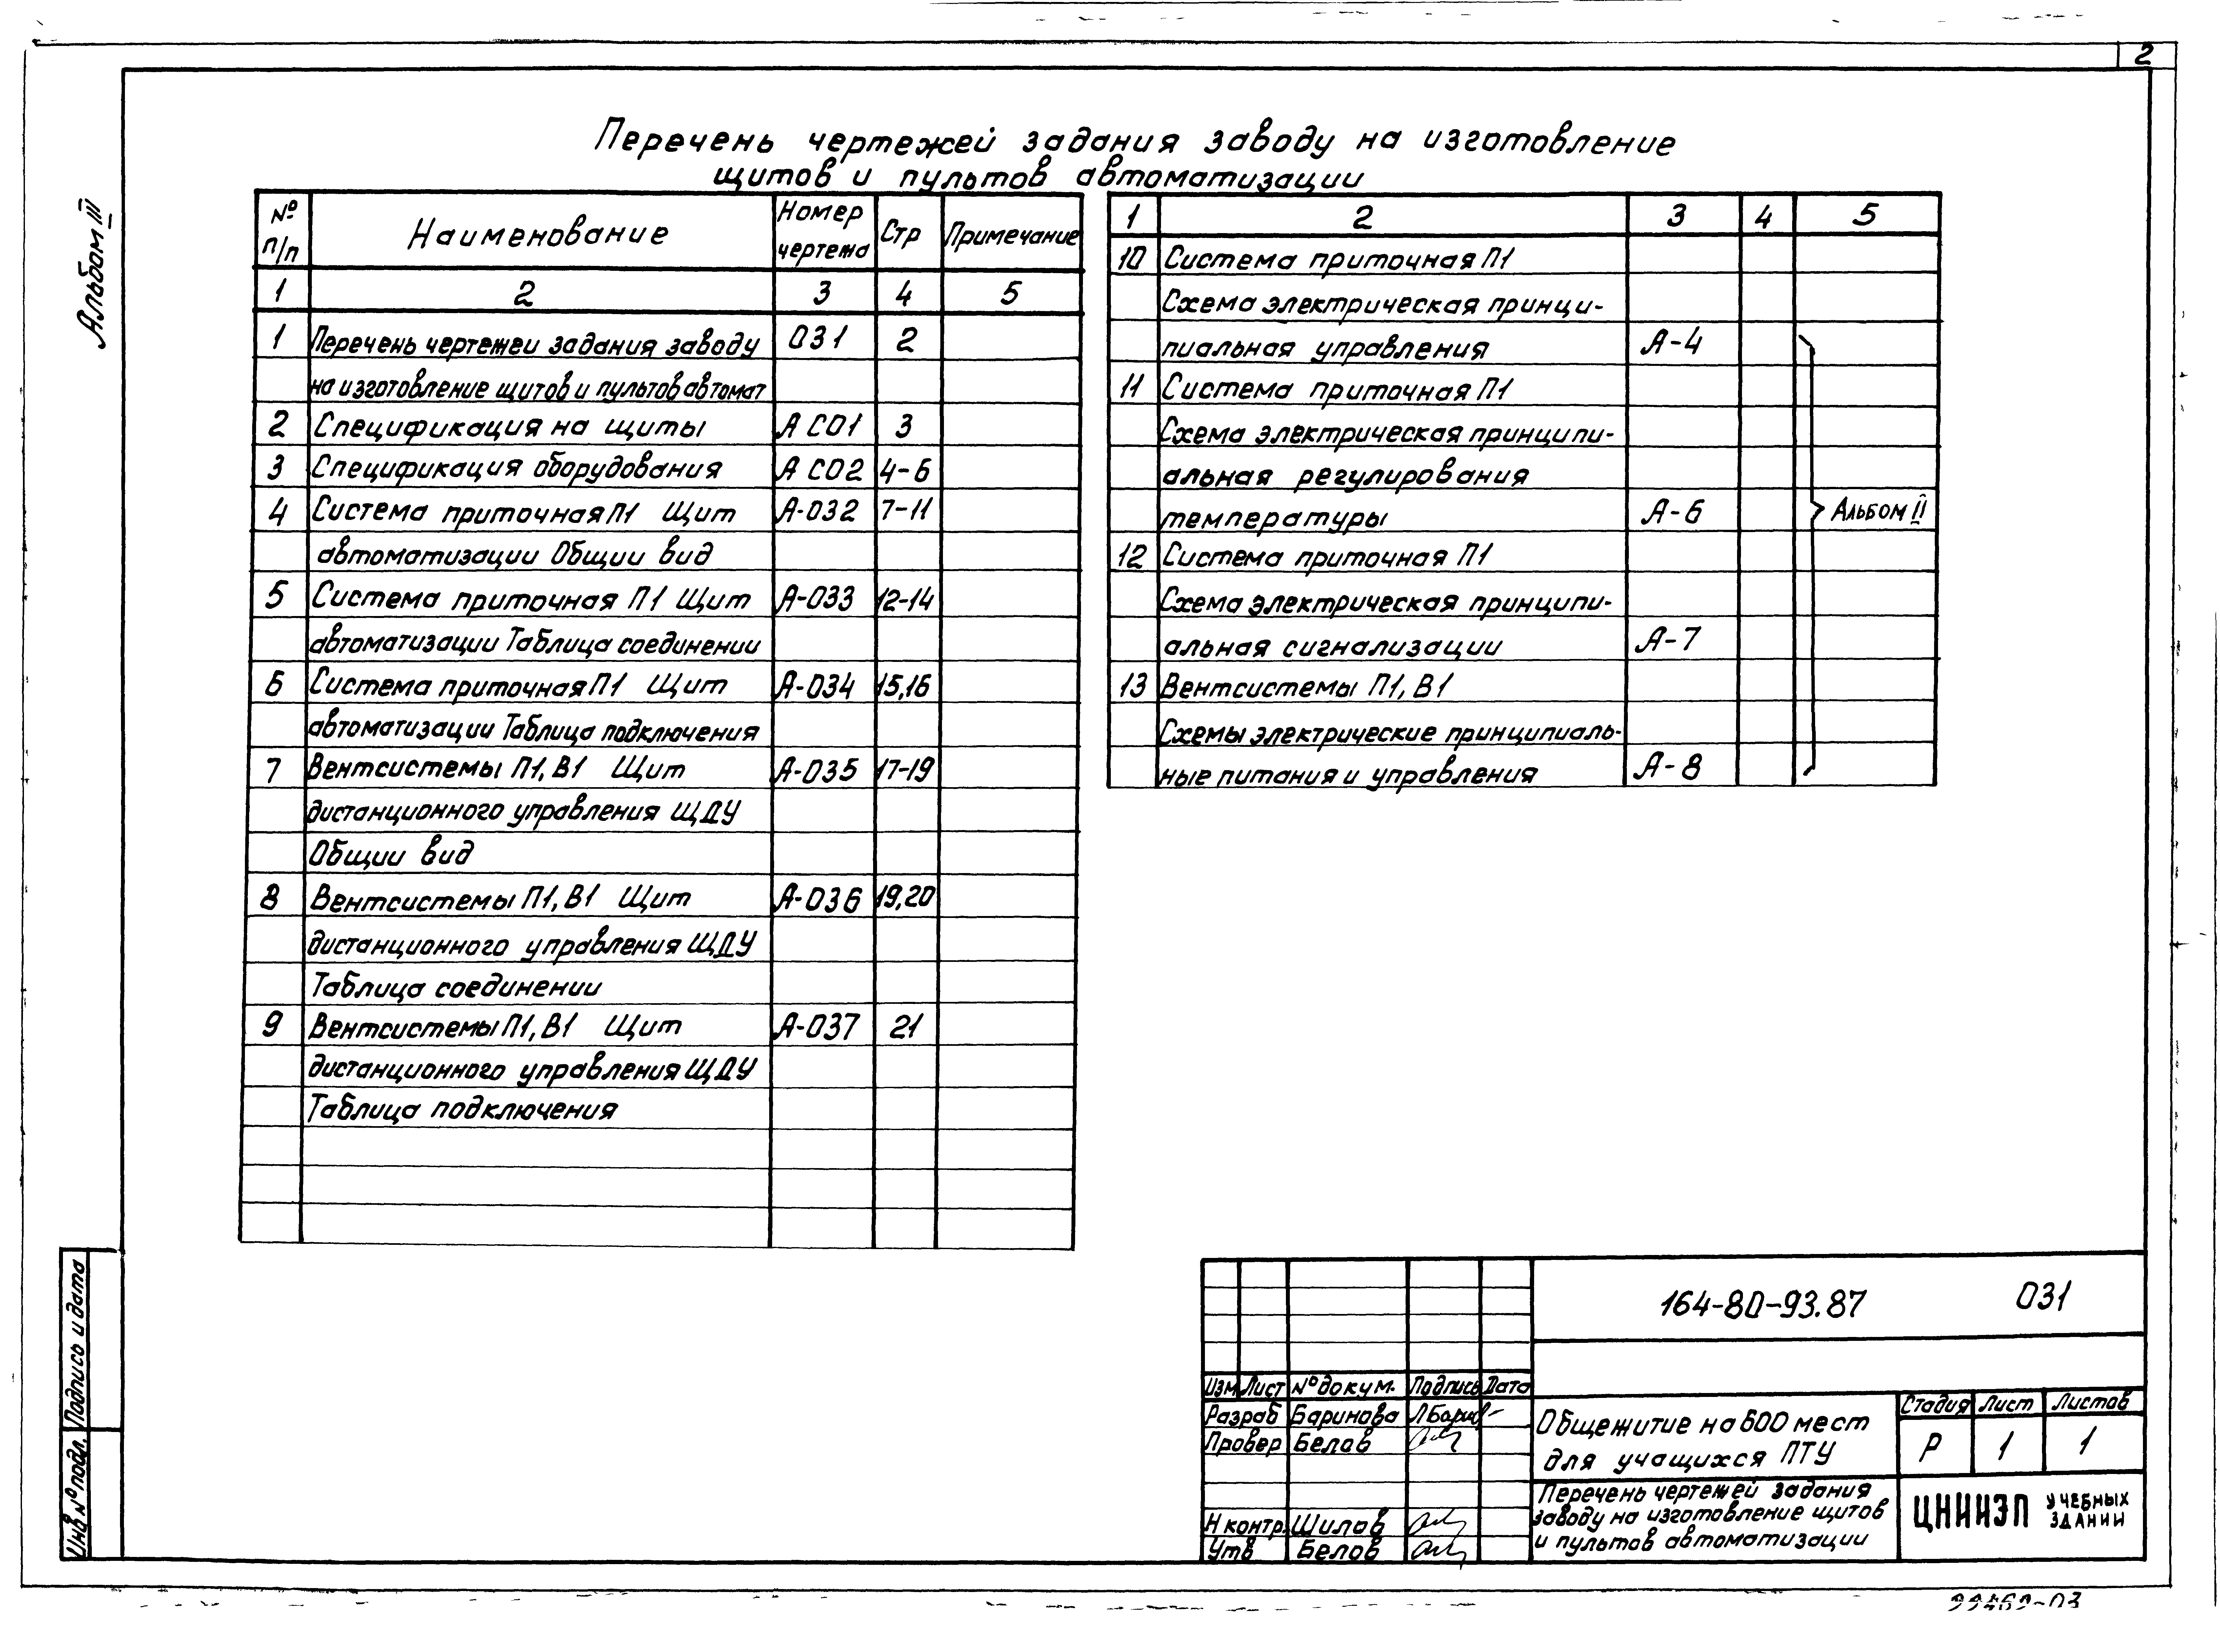 2
Альбом III
Перечень чертежей задания заводу на изготовление
щитов и пультов автоматизации
№ п/п Наименование Номер чертежа Стр Примечание
1 2 3 4 5
1 Перечень чертежеи задания заводу 031 2
на изготовление щитов и пультов автомат
2 Спецификация на щиты А СО1 3
3 Спецификация оборудования А СО2 4-6
4 Система приточная П1 Щит А-032 7-11
автоматизации Общии вид
5 Система приточная П1 Щит А-033 12-14
автоматизации Таблица соединении
6 Система приточная П1 Щит А-034 15,16
автоматизации Таблица подключения
7 Вентсистемы П1, В1 Щит А-035 17-19
дистанционного управления ЩДУ
Общии вид
8 Вентсистемы П1, В1 Щит А-036 19,20
дистанционного управления ЩДУ
Таблица соединении
9 Вентсистемы П1, В1 Щит А-037 21
дистанционного управления ЩДУ
Таблица подключения
1 2 3 4 5
10 Система приточная П1
Схема электрическая принци-
пиальная управления А-4
11 Система приточная П1
Схема электрическая принципи-
альная регулирования
температуры А-6 Альбом II
12 Система приточная П1
Схема электрическая принципи-
альная сигнализации А-7
13 Вентсистемы П1, В1
Схемы электрические принципиаль-
ные питания и управления А-8
Подпись и дата
Инв № подл.
164-80-93.87 031
Изм Лист № докум. Подпись Дата
Разраб Баринова
Провер Белов
Н контр. Шилов
Утв Белов
Общежитие на 600 мест
для учащихся ПТУ
Стадия Лист Листов
Р 1 1
Перечень чертежей задания
заводу на изготовление щитов
и пультов автоматизации
ЦНИИЭП УЧЕБНЫХ
ЗДАНИИ